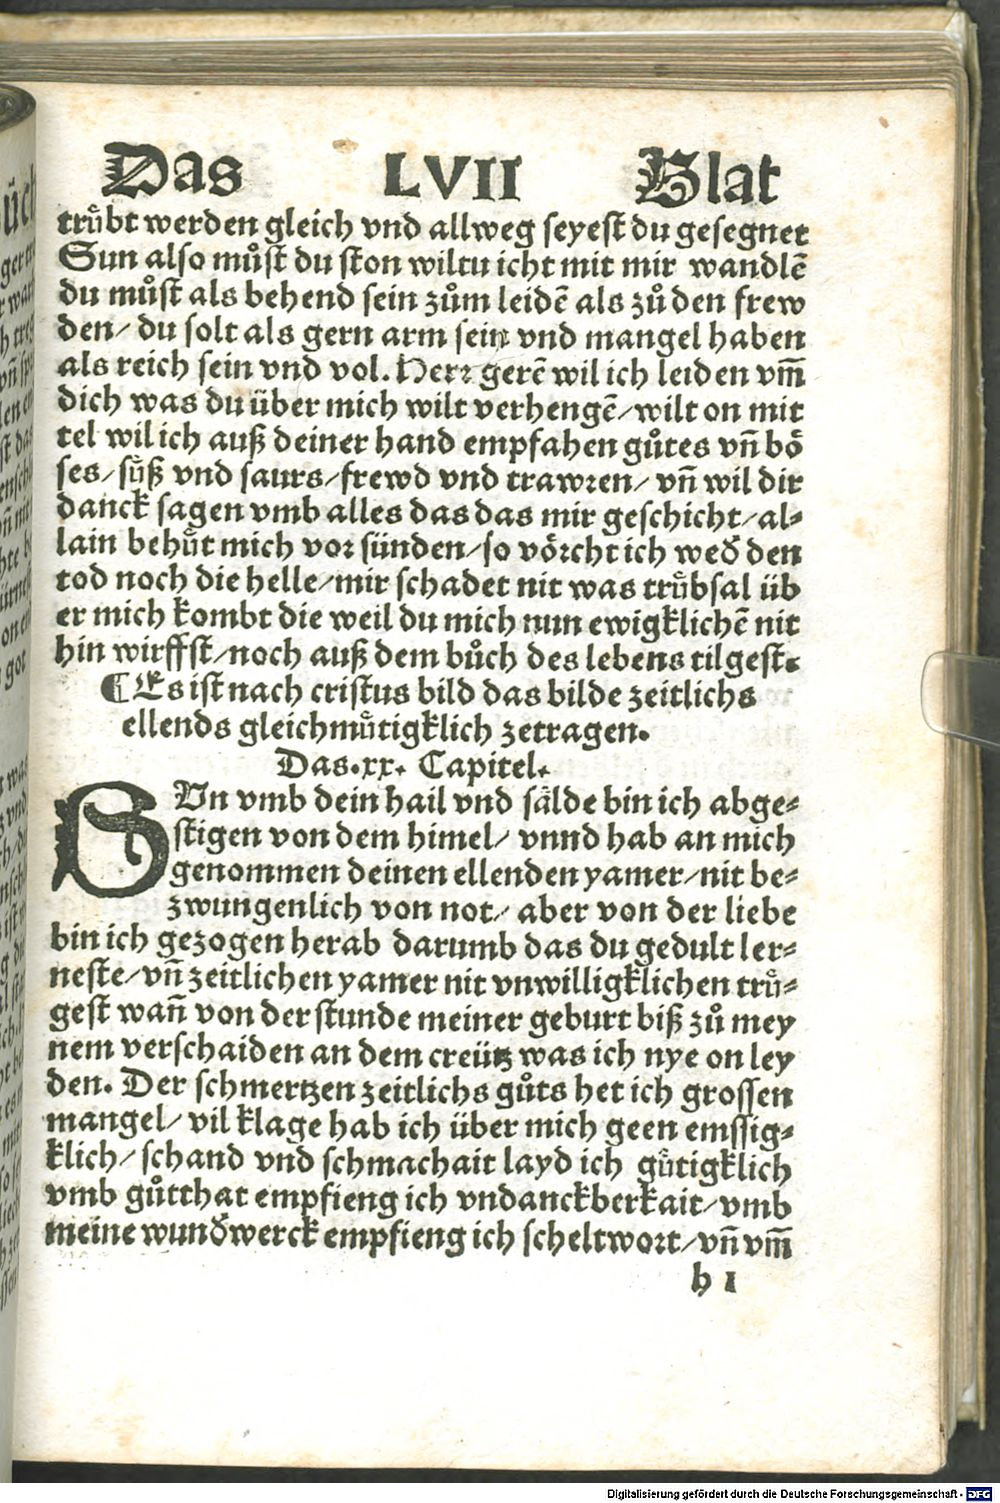 Das LVII Blat
truͤbt werden gleich vnd allweg seyest du gesegnet
Sun also muͦst du ston wiltu icht mit mir wandlē
du muͦst als behend sein zuͦm leidē als zuͦ den frew
den/ du solt als gern arm sein vnd mangel haben
als reich sein vnd vol. Herr gerē wil ich leiden vm̄
dich was du über mich wilt verhengē/wilt on mit
tel wil ich auß deiner hand empfahen guͦtes vn̄ boͤ
ses/suͤß vnd saurs/frewd vnd trawren/ vn̄ wil dir
danck sagen vmb alles das das mir geschicht/al⸗
lain behuͤt mich vor sünden/so voͤrcht ich wed̕ den
tod noch die helle/mir schadet nit was truͤbsal üb
er mich kombt die weil du mich nun ewigklichē nit
hin wirffst/noch auß dem buͦch des lebens tilgest.
¶ Es ist nach cristus bild das bilde zeitlichs
ellends gleichmuͤtigklich zetragen.
Das.xx. Capitel.
SVn vmb dein hail vnd saͤlde bin ich abge⸗
stigen von dem himel/ vnnd hab an mich
genommen deinen ellenden yamer/nit be⸗
zwungenlich von not/ aber von der liebe
bin ich gezogen herab darumb das du gedult ler⸗
neste/vn̄ zeitlichen yamer nit vnwilligklichen truͤ⸗
gest wan̄ von der stunde meiner geburt biß zuͦ mey
nem verschaiden an dem creütz was ich nye on ley
den. Der schmertzen zeitlichs guͦts het ich grossen
mangel/ vil klage hab ich über mich geen emssig⸗
klich/ schand vnd schmachait layd ich guͤtigklich
vmb guͦtthat empfieng ich vndanckberkait/vmb
meine wund̕werck empfieng ich scheltwort/vn̄ vm̄
h 1
Digitalisierung gefördert durch die Deutsche Forschungsgemeinschaft - DFG